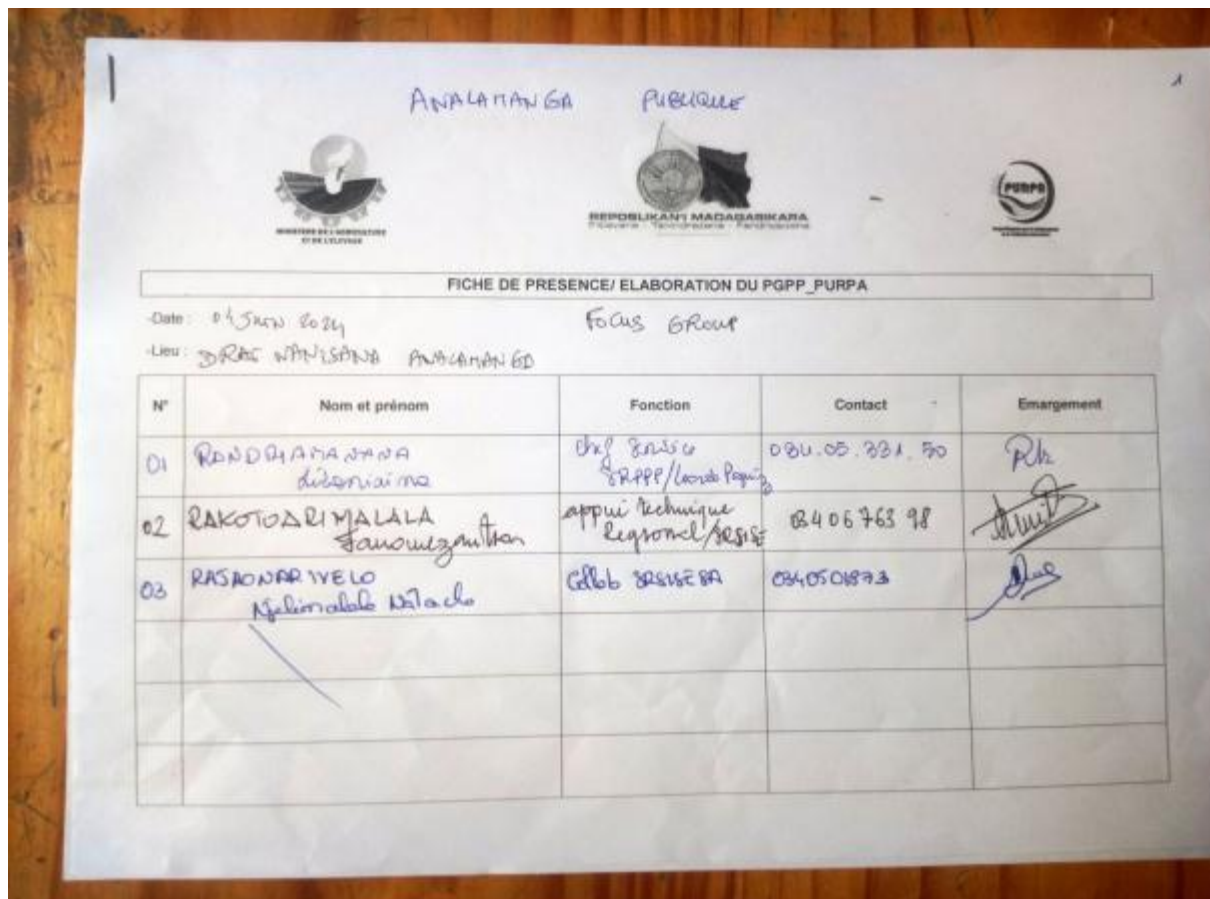 1
ANALAMANGA PUBLIQUE
MINISTERE DE L'AGRICULTURE
ET DE L'ELEVAGE
REPOBLIKAN'I MADAGASIKARA
Fitiavana - Tanindrazana - Fandrosoana
PURPA
FICHE DE PRESENCE/ ELABORATION DU PGPP_PURPA
-Date : 04 Juin 2024 FOCUS GROUP
-Lieu : DRAE NANISANA ANALAMANGA
N° Nom et prénom Fonction Contact Emargement
01 RANDRIAMANANA Chef 034.05.331.50
SRPPP/
02 RAKOTOARIMALALA appui technique 03406763 98
Fanomezantsoa Regional/SRSISE
03 RAJAONARIVELO Collab SRSISE 0340501873